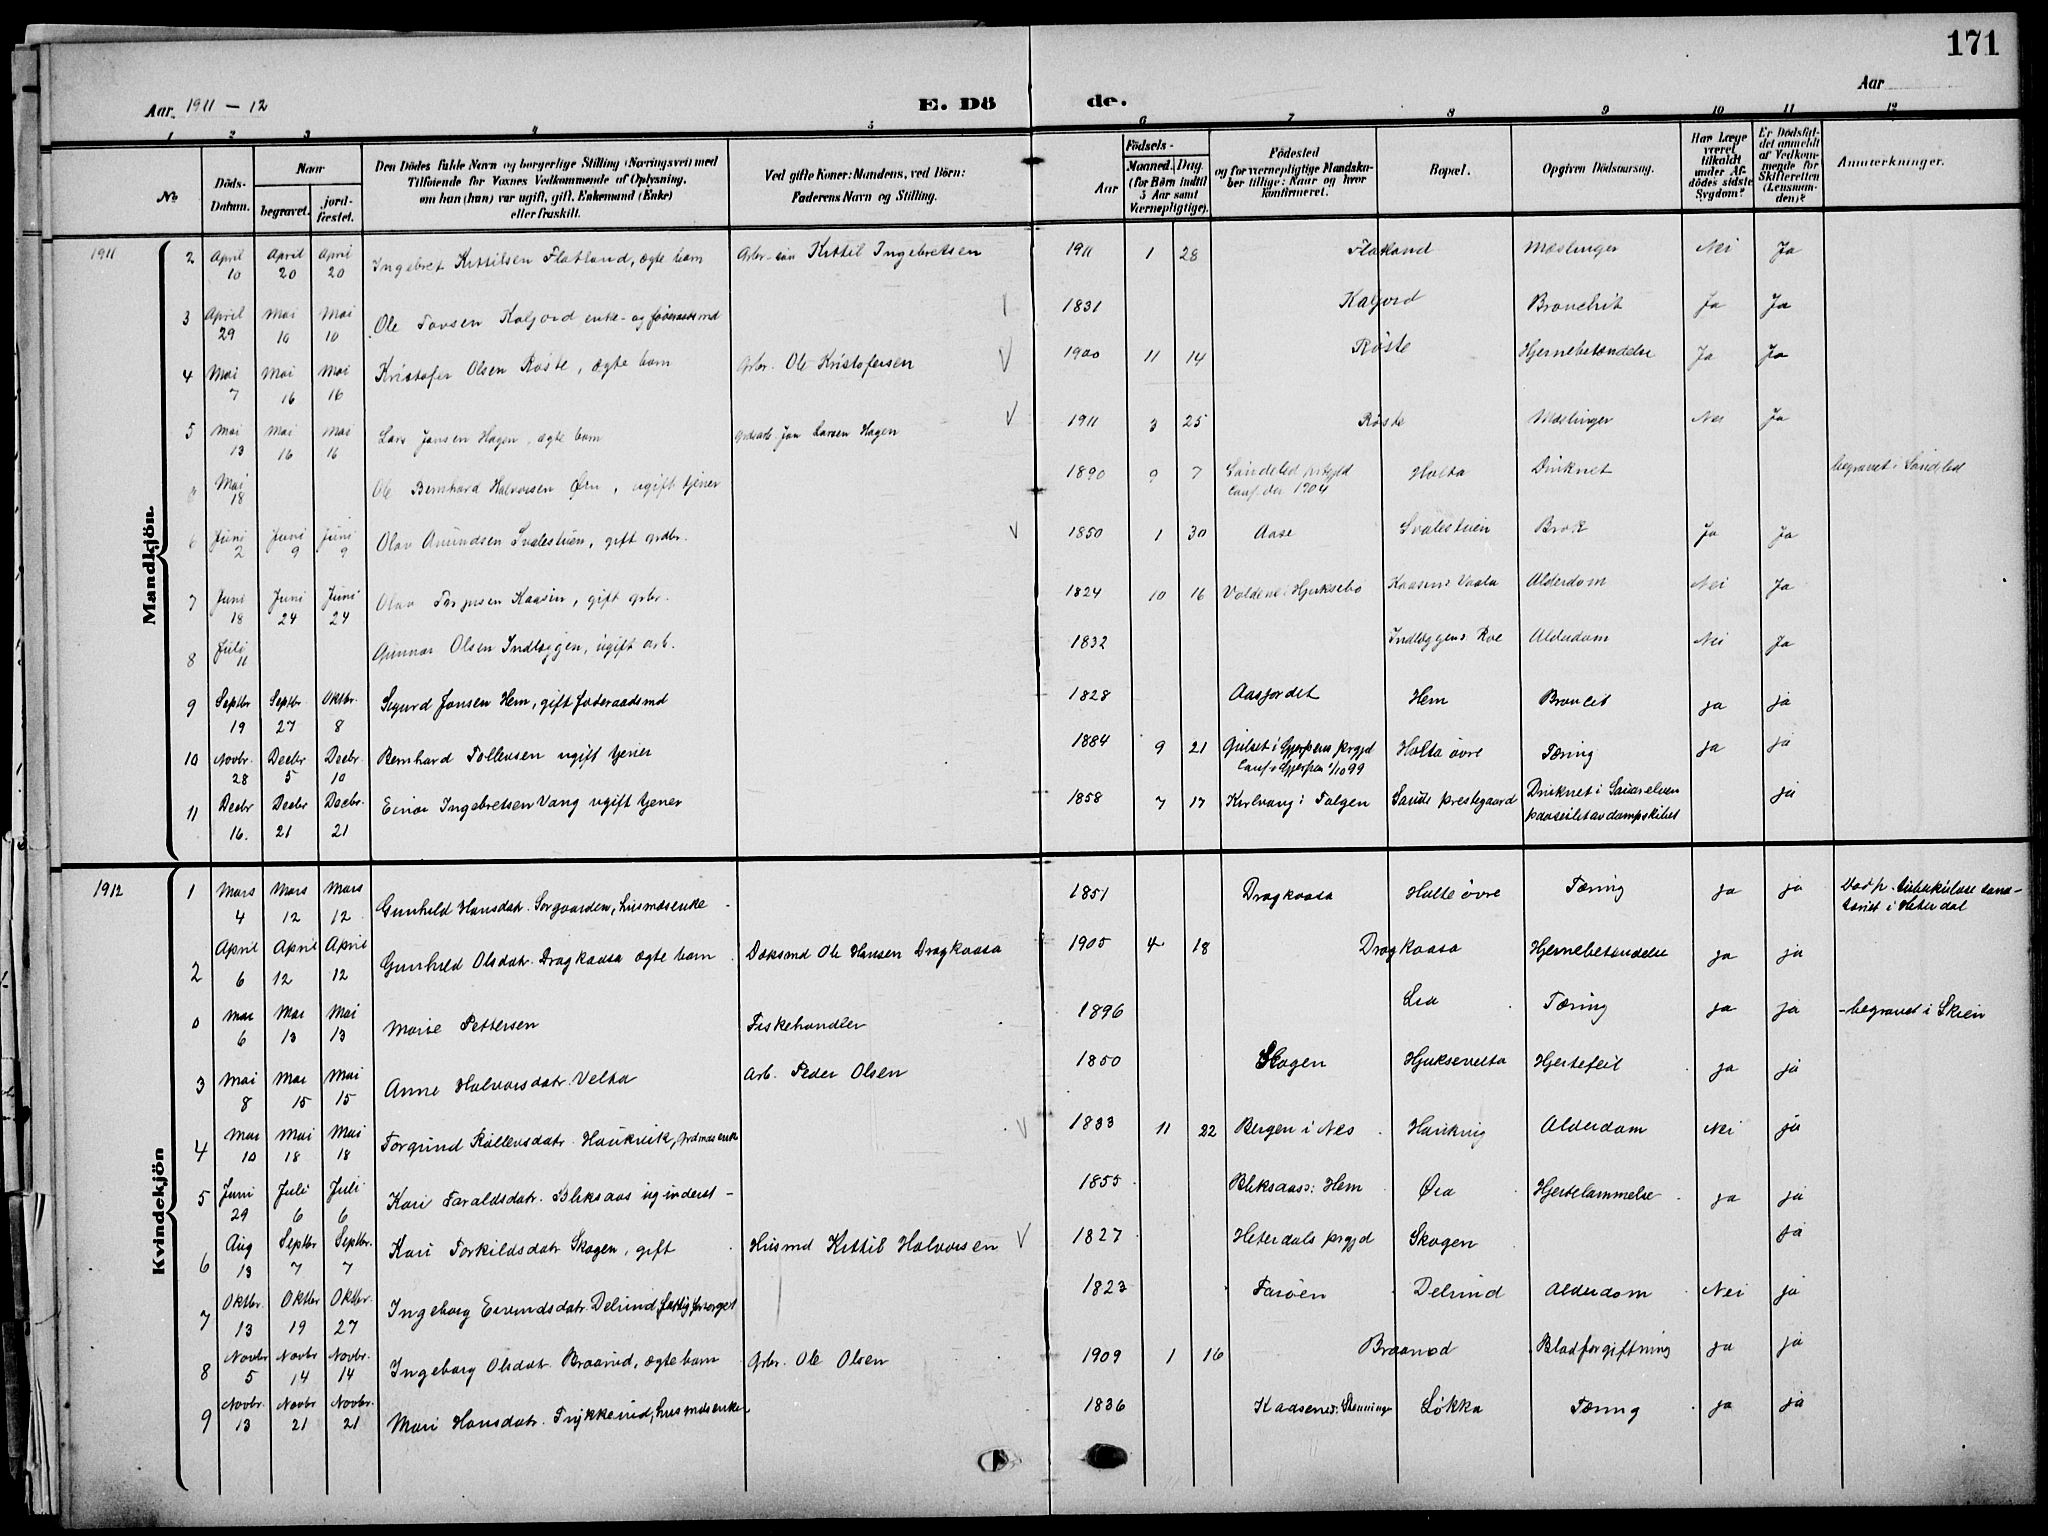 171
Aar. 1911 – 12
E. Dö de.
Aar
1 2 3 4 5 6 7 8 9 10 11 12
No.
Döds-Datum.
Naar
begravet.
jord-fæstet.
Den Dödes fulde Navn og borgerlige Stilling (Næringsvei) med
Tilföiende for Voxnes Vedkommende af Oplysning,
om han (hun) var ugift, gift, Enkemand (Enke)
eller fraskilt.
Ved gifte Koner: Mandens, ved Börn:
Faderens Navn og Stilling.
Födsels-
Aar
Maaned. Dag.
(for Börn indtil
5 Aar samt
Værnepligtige).
Födested
og for værnepligtige Mandska-
ber tillige: Naar og hvor
konfirmeret.
Bopæl.
Opgiven Dödsaarsag.
Har Læge
været
tilkaldt
under Af-
dödes sidste
Sygdom?
Er Dödsfal-
det anmeldt
af Vedkom-
mende for
Skifteretten
(Lensman-
den)?
Anmærkninger.
Mandkjön.
1911 2 April 10 April 20 April 20 Ingebret Kittilsen Flatland, ægte barn Kittil Ingebretsen 1911 1 28 Flatland Mæslinger Nei Ja
3 April 29 Mai 10 Mai 10 Ole Tovsen Kaljord enke- og 1831 Kaljord Bronchit Ja Ja
4 Mai 7 Mai 16 Mai 16 Kristofer Olsen Røste, ægte barn Grbr. Ole Kristofersen 1900 11 14 Røste Hjernebetændelse Ja Ja
5 Mai 13 Mai 16 Mai 16 Lars Jansen Hagen, ægte barn Jan Larsen Hagen 1911 3 25 Røste Mæslinger Nei Ja
Mai 18 Ole Bernhard Halvorsen Ørn, ugift tjener 1890 9 7 Søndeled prstgjd Conf. der 1904 Holta Druknet begravet i Søndeled
6 Juni 2 Juni 9 Juni 9 Olav Amundsen Svalestuen, gift grdbr. 1850 1 30 Aase Svalestuen Brok Ja Ja
7 Juni 18 Juni 24 Juni 24 Olav Torjusen Kaasin, gift grbr. 1824 10 16 Voldene i Hjuksebø Alderdom Nei Ja
8 Juli 11 Gunnar Olsen Indlæggen, ugift arb. 1832 Indlæggen Alderdom Nei Ja
9 Septbr 19 Septbr 27 Oktbr. 8 Sigurd Jonsen Hem, gift foderaadsmd 1828 Aasjordet Hem Broncit ja ja
10 Novbr. 28 Decbr 5 Decbr. 10 Bernhard Tollevsen ugift tjener 1884 9 21 Gulset i Gjerpens prgjd Conf. i Gjerpen 1/10 99 Holta øvre Tæring ja ja
11 Decbr 16. Decbr 21 Decbr. 21 Einar Ingebretsen Vang ugift tjener 1858 7 17 Kirlvang i Tolgen Saude prestegaard Druknet i Sauarelven paaseilet av dampskibet ja
Kvindekjön
1912 1 Mars 4 Mars 12 Mars 12 Gunhild Hansdatr. Sorgaarden, husmdsenke 1851 Dragkaasa Holte øvre Tæring ja ja Død p. tuberkuløse sana-
toriet i Heterdal
2 April 6 April 12 April 12 Gunhild Olsdatr. Dragkaasa ægte barn Ole Hansen Dragkaasa 1905 4 18 Dragkaasa Hjernebetændelse ja ja
0 Mai 6 Mai 13 Mai 13 Marie Pettersen Fiskehandler 1896 Lia Tæring ja ja - begravet i Skien
3 Mai 8 Mai 15 Mai 15 Anne Halvorsdatr. Velta Arb. Peder Olsen 1850 Skogen Hjuksevelta Hjertefeil ja ja
4 Mai 10 Mai 18 Mai 18 Torgund Rollevsdatr. Haukvik, grdmdsenke 1833 11 22 Bergen i Nes Haukvig Alderdom Nei ja
5 Juni 29 Juli 6 Juli 6 Kari Taraldsdatr. Bliksaas ug inderst – 1855 Bliksaas i Hem Øra Hjertelammelse ja ja
6 Aug 13 Septbr 7 Septbr. 7 Kari Torkildsdatr. Skogen, gift Husmd Kittil Halvorsen 1827 Heterdals prgjd Skogen ja
7 Oktbr. 13 Oktbr 19 Oktbr. 27 Ingeborg Eivindsdatr. Delund, fattigforsørget 1823 Farøen Delund Alderdom Nei ja
8 Novbr 5 Novbr 14 Novbr. 14 Ingeborg Olsdatr. Braarud, ægte barn Grbr. Ole Olsen 1909 1 16 Braarud Blodforgiftning ja ja
9 Novbr. 13 Novbr 21 Novbr. 21 Mari Hansdatr. Trykkerud, husmdsenke 1836 Løkka Tæring ja ja